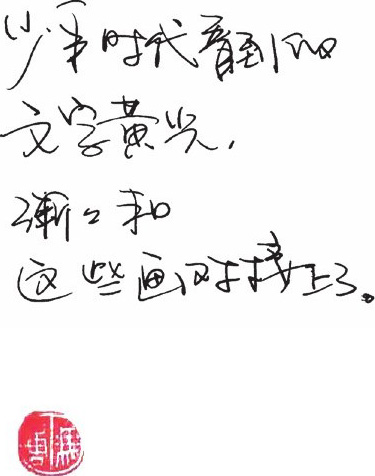 少年时代看到的
文字黄光,
渐々和
这些画对接上了。